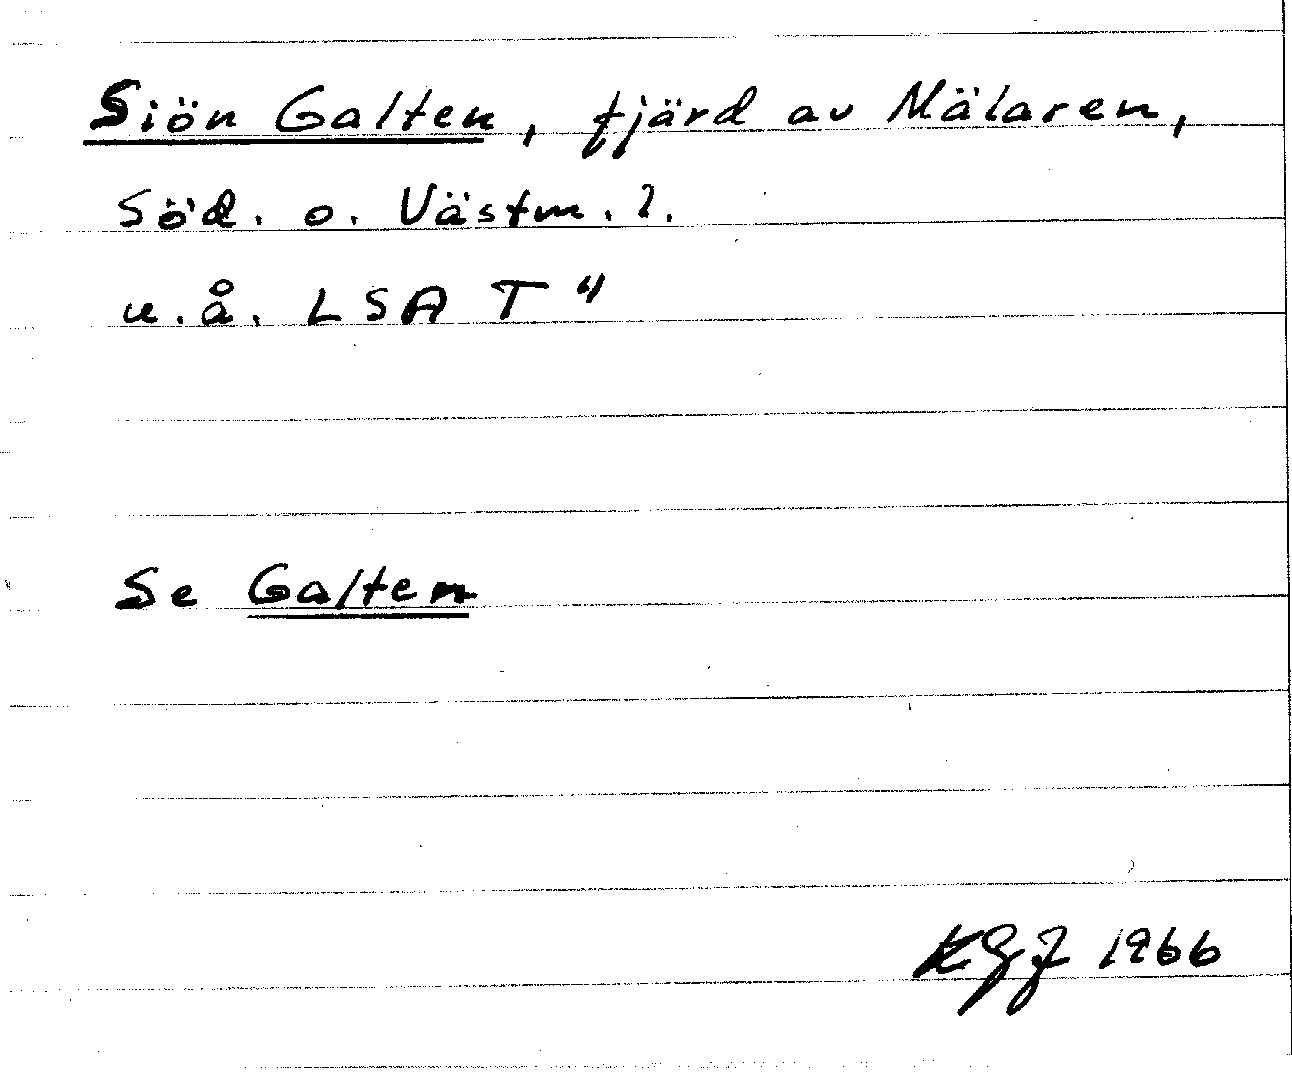 Siön Galten, fjärd av Mälaren,
Söd. o. Västm. l.
u.å. LSA T 4
Se Galten
KGJ 1966